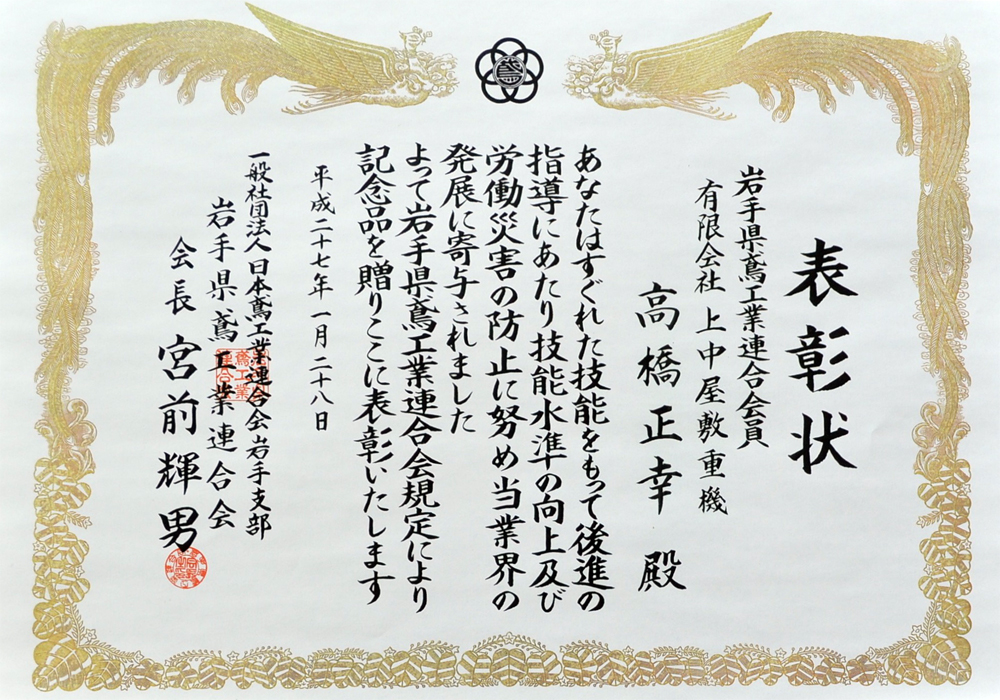 表彰状
岩手県鳶工業連合会員
有限会社 上中屋敷重機
高橋正幸 殿
あなたはすぐれた技能をもって後進の
指導にあたり技能水準の向上及び
労働災害の防止に努め当業界の
発展に寄与されました
よって岩手県鳶工業連合会規定により
記念品を贈りここに表彰いたします
平成二十七年一月二十八日
一般社団法人日本鳶工業連合会岩手支部
岩手県鳶工業連合会
会長 宮前輝男